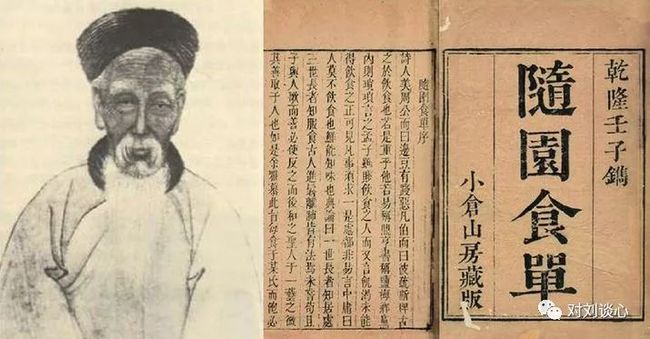 乾隆壬子鐫
隨園食單
小倉山房藏版
隨園食單序
詩人美周公而曰籩豆有踐惡凡伯而曰彼疏斯稗古
之於飲食也若是重乎他若易稱鼎亨書稱鹽梅鄉黨
內則瑣瑣言之孟子雖賤飲食之人而又言飢渴未能
得飲食之正可見凡事須求一是處都非易言中庸曰
人莫不飲食也鮮能知味也典論曰一世長者知居處
三世長者知服食古人進鬐離肺皆有法焉未嘗苟且
子與人歌而善必使反之而後和之聖人于一藝之微
其善取于人也如是余雅慕此旨每食于某氏而飽必
对刘谈心